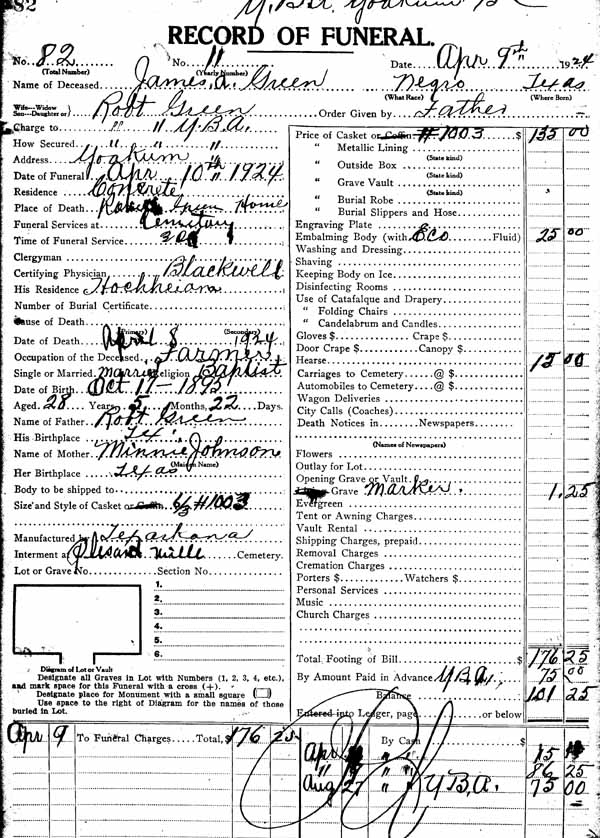 82
Y.B.A. Yoakum
RECORD OF FUNERAL.
No. 82 (Total Number) No. 11 (Yearly Number) Date Apr 9th 1924
Name of Deceased James A. Green Negro (What Race) Texas (Where Born)
Wife—Widow Son—Daughter or Robt Green Order Given by Father
Charge to " " Y.B.A.
How Secured " "
Address Yoakum "
Date of Funeral Apr 10th 1924
Residence Concrete
Place of Death Green Home
Funeral Services at Cemetary
Time of Funeral Service
Clergyman
Certifying Physician Blackwell
His Residence Hochheiam
Number of Burial Certificate
Cause of Death
(Primary) (Secondary)
Date of Death April 8 1924
Occupation of the Deceased Farmer
Single or Married Married Religion Baptist
Date of Birth Oct 17-1895
Aged 28 Years 5 Months, 22 Days.
Name of Father Robt Green
His Birthplace Tex.
Name of Mother Minnie Johnson
(Maiden Name)
Her Birthplace Texas
Body to be shipped to
Size and Style of Casket or Coffin 6/3 #1003
Manufactured by Texarkana
Interment at Cemetery.
Lot or Grave No. Section No.
1.
2.
3.
4.
5.
6.
Diagram of Lot or Vault
Designate all Graves in Lot with Numbers (1, 2, 3, 4, etc.),
and mark space for this Funeral with a cross (+).
Designate place for Monument with a small square
Use space to right of Diagram for the names of those
buried in Lot.
Price of Casket or Coffin #1003 $ 135 00
" Metallic Lining
(State kind)
" Outside Box
(State kind)
" Grave Vault
(State kind)
" Burial Robe
" Burial Slippers and Hose
Engraving Plate
Embalming Body (with Eco Fluid) 25 00
Washing and Dressing
Shaving
Keeping Body on Ice
Disinfecting Rooms
Use of Catafalque and Drapery
" Folding Chairs
" Candelabrum and Candles
Gloves $ Crape $
Door Crape $ Canopy $
Hearse 15 00
Carriages to Cemetery @ $
Automobiles to Cemetery @ $
Wagon Deliveries
City Calls (Coaches)
Death Notices in Newspapers
(Names of Newspapers)
Flowers
Outlay for Lot
Opening Grave or Vault
Grave Marker. 1.25
Evergreen
Tent or Awning Charges
Vault Rental
Shipping Charges, prepaid
Removal Charges
Cremation Charges
Porters $ Watchers $
Personal Services
Music
Church Charges
Total Footing of Bill $ 176 25
By Amount Paid in Advance Y.B.A. 75 00
Balance 101 25
Entered into Ledger, page or below
Apr 9 To Funeral Charges Total, $ 176 25
Apr By Cash 15
" " " 86 25
Aug 27 " " Y.B.A. 75 00